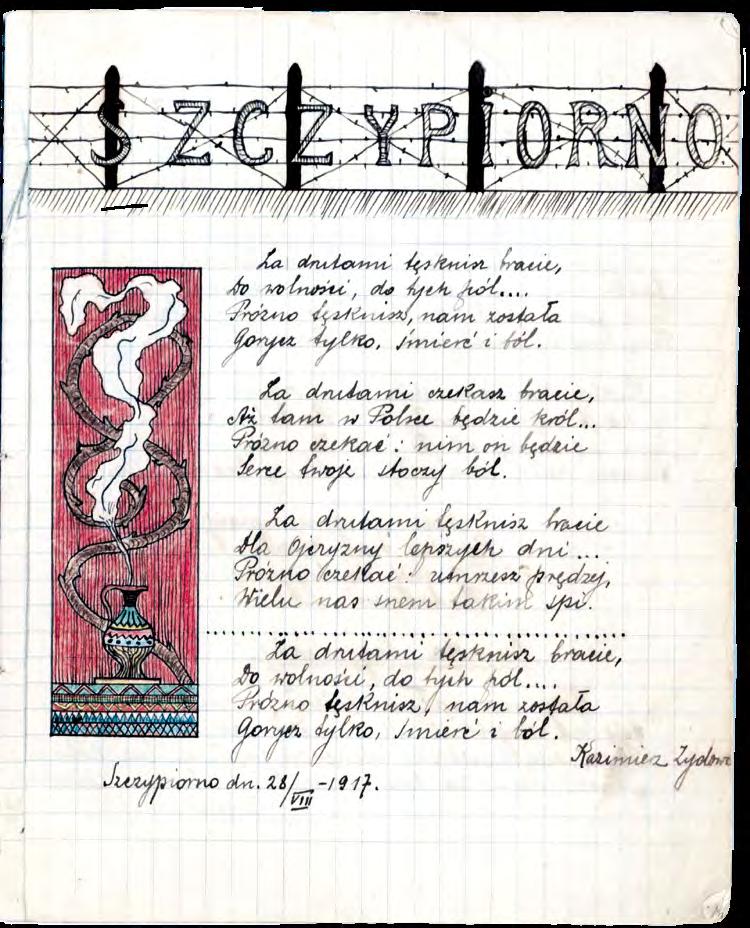 SZCZYPIORNO
Za drutami tęsknisz bracie,
Do wolności, do tych pól....
Próżno tęsknisz, nam została
Gorycz tylko, śmierć i ból.
Za drutami czekasz bracie,
Aż tam w Polsce będzie król...
Próżno czekać: nim on będzie
Serce twoje stoczy ból.
Za drutami tęsknisz bracie
Dla Ojczyzny lepszych dni...
Próżno czekać: umrzesz prędzej,
Wielu nas snem takim śpi.
Za drutami tęsknisz bracie,
Do wolności, do tych pól....
Próżno tęsknisz, nam została
Gorycz tylko, śmierć i ból.
Kazimierz
Szczypiorno dn. 28/VIII -1917.